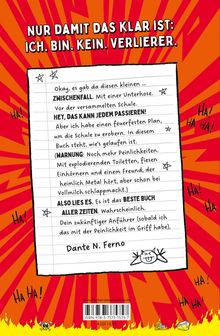 NUR DAMIT DAS KLAR IST:
ICH. BIN. KEIN. VERLIERER.
Okay, es gab da diesen kleinen ...
ZWISCHENFALL. Mit einer Unterhose.
Vor der versammelten Schule.
HEY, DAS KANN JEDEM PASSIEREN!
Aber ich habe einen feuerfesten Plan,
um die Schule zu erobern. In diesem
Buch steht, wie's gelaufen ist.
(WARNUNG: Noch mehr Peinlichkeiten.
Mit explodierenden Toiletten, fiesen
Einhörnern und einem Freund, der
heimlich Metal hört, aber schon bei
Vollmilch schlappmacht.)
ALSO LIES ES. Es ist das BESTE BUCH
ALLER ZEITEN. Wahrscheinlich.
Dein zukünftiger Anführer (sobald ich
das mit der Peinlichkeit im Griff habe),
Dante N. Ferno
HA!
HA!
HA!
HA!
HA!
HA!
HA!
HA!